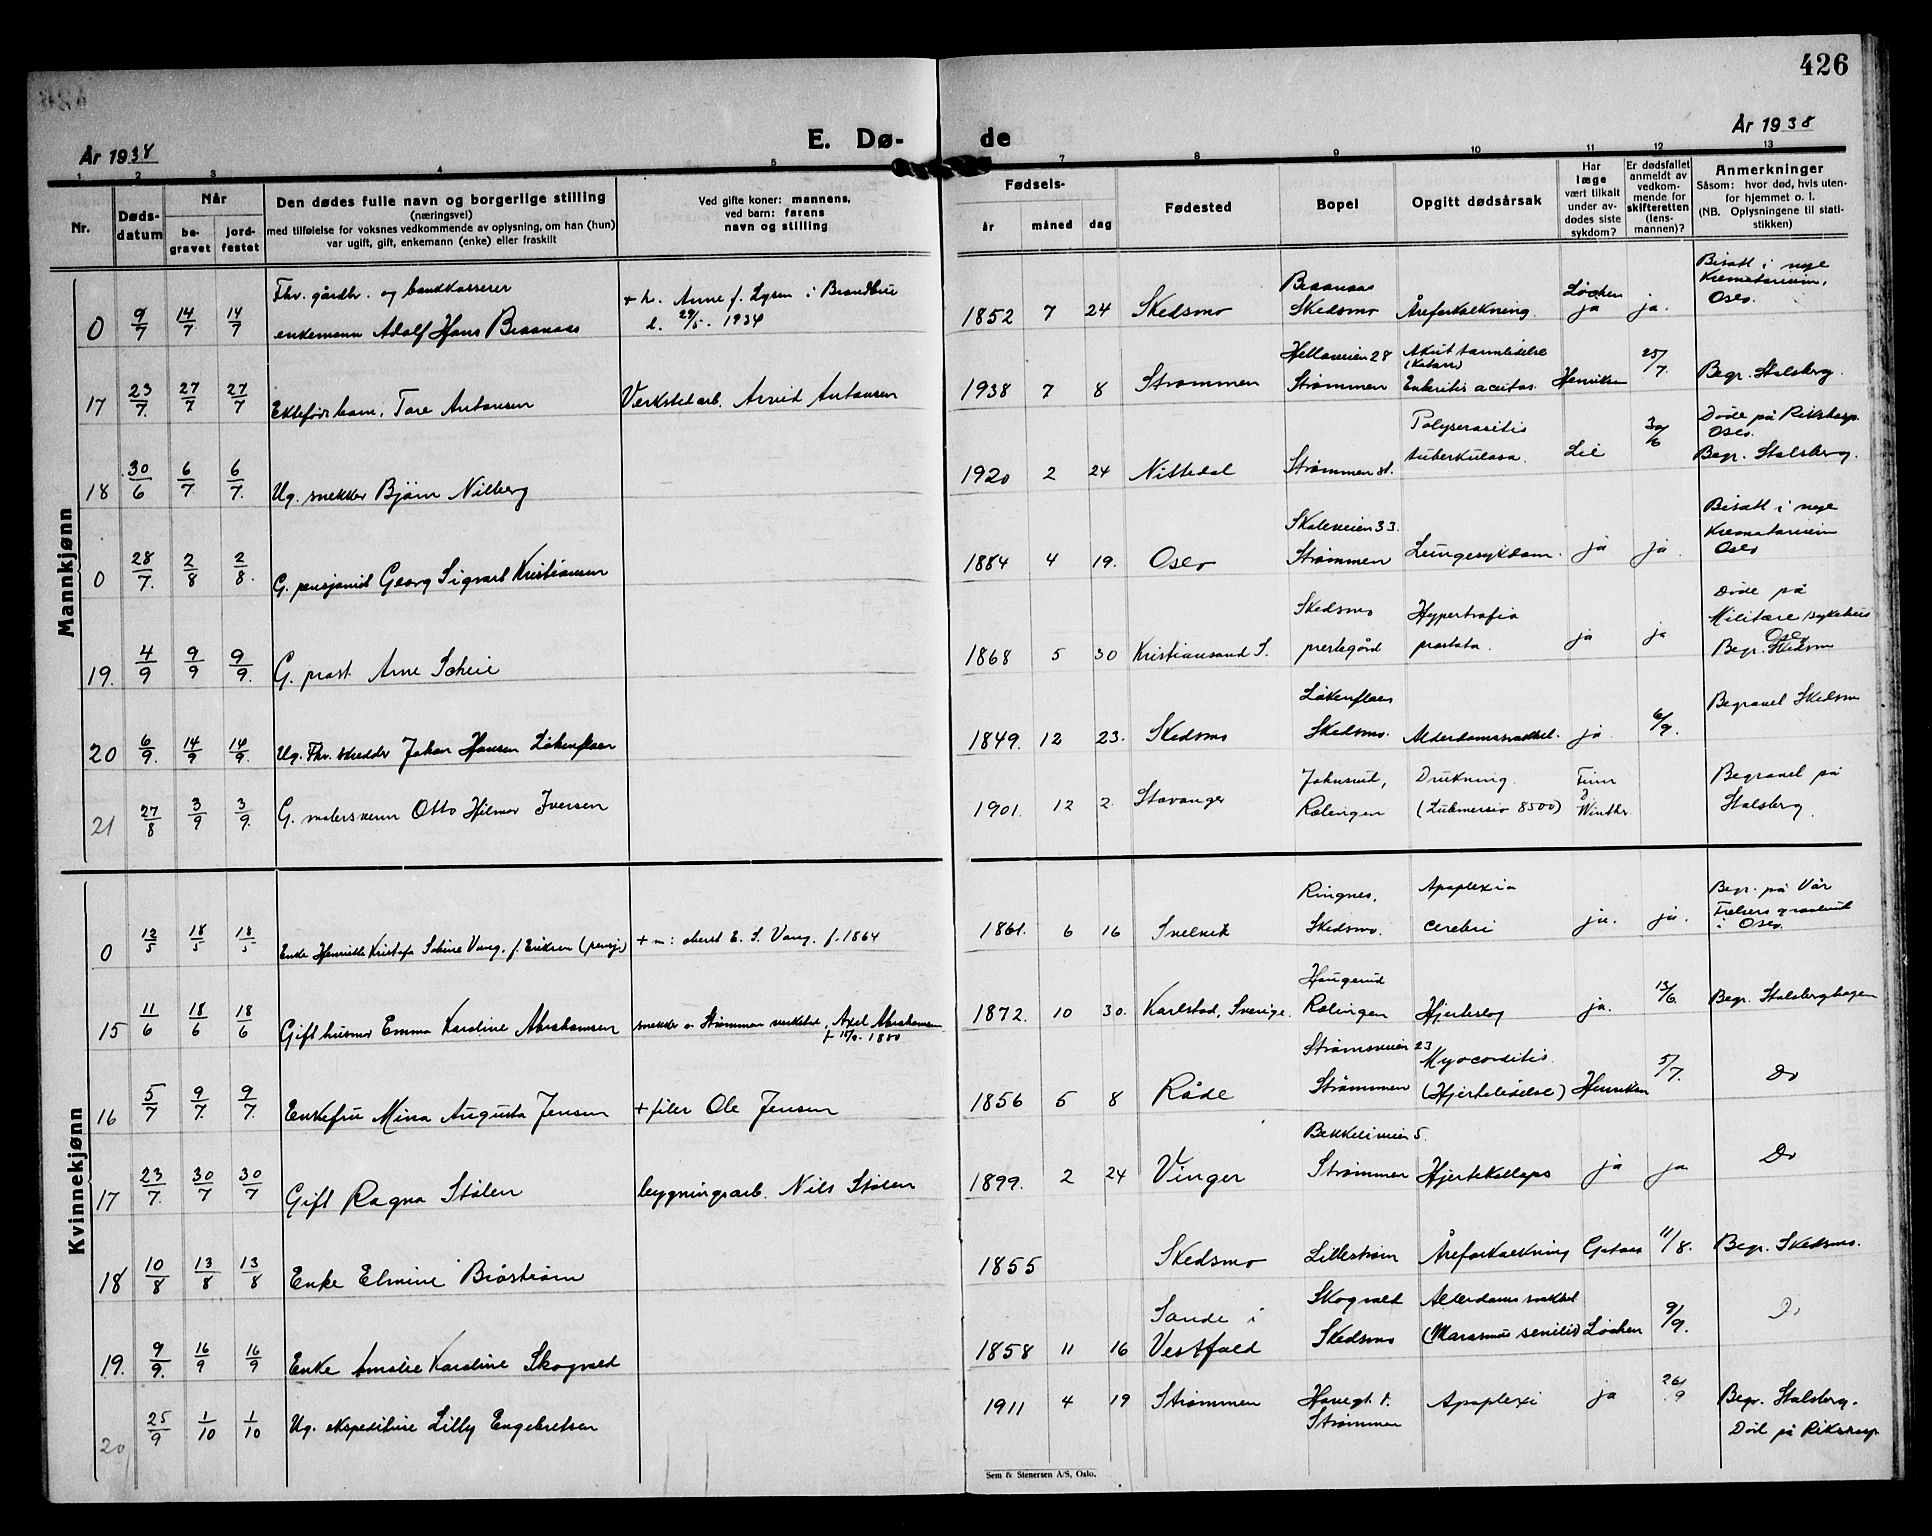 426
År 1938
E. Dø-
de
År 1938
1 2 3 4 5 7 8 9 10 11 12 13
Nr.
Døds-
datum
Når
be-
gravet
jord-
festet
Den dødes fulle navn og borgerlige stilling
(næringsvei)
med tilføielse for voksnes vedkommende av oplysning, om han (hun)
var ugift, gift, enkemann (enke) eller fraskilt
Ved gifte koner: mannens,
ved barn: farens
navn og stilling
Fødsels-
år måned dag
Fødested
Bopel
Opgitt dødsårsak
Har
læge
vært tilkalt
under av-
dødes siste
sykdom?
Er dødsfallet
anmeldt av
vedkom-
mende for
skifteretten
(lens-
mannen)?
Anmerkninger
Såsom: hvor død, hvis uten-
for hjemmet o. l.
(NB. Oplysningene til stati-
stikken)
Mannkjønn
0 9/7 14/7 14/7 Fhv. gårdbr. og bankkasserer
enkemann Adolf Hans Braanaas
+ h. Anne f. Lysen i Brandbue
d. 29/5 - 1934
1852 7 24 Skedsmo
Braanaas
Skedsmo
Åreforkalkning.
Løchen
ja
ja.
Bisatt i nye
Krematorium,
Oslo.
17 23/7. 27/7 27/7 Ektefødt barn, Tore Antonsen
Verkstedarb. Arvid Antonsen
1938 7 8 Strømmen
Hellaveien 28
Strømmen
Akut tarmlidelse
(Katarr)
Enteritis acutas.
Henriksen
25/7.
Begr. Stalsberg.
18 30/6 6/7. 6/7. Ug. snekker Bjørn Nilberg
1920 2 24 Nittedal
Strømmen st.
Polyserositis
tuberkulosa.
Lie
30/6
Døde på Rikshosp.
Oslo.
Begr. Stalsberg.
0 28/7. 2/8 2/8. G. pensjonist Georg Sigvart Kristiansen
1884 4 19. Oslo
Skoleveien 33.
Strømmen
Lungesykdom.
ja
ja.
Bisatt i nye
Krematorium
Oslo
19. 4/9 9/9 9/9. G. prost Arne Scheie
1868 5 30 Kristiansand S.
Skedsmo
prestegård
Hypertrofia
prostata.
ja
ja
Døde på
Militære sykehus
Oslo
Begr. Skedsmo
20 6/9. 14/9 14/9. Ug. Fhv. skredder Johan Hansen Løkenflaen
1849. 12 23. Skedsmo
Løkenflaen
Skedsmo.
Alderdomssvakhet.
ja
6/9.
Begravet Skedsmo
21 27/8 3/9 3/9. G. malersvenn Otto Hilmar Iversen
1901. 12 2. Stavanger
Johnsrud,
Rælingen
Drukning.
(Submersio 8500)
Winther
Begravet på
Stalsberg
Kvinnekjønn
0 12/5 18/5 18/5 Enke Henriette Kristofa Sabine Vang. f. Eriksen (pensj.)
+ m: oberst E. S. Vang. f. 1864
1861. 6 16 Svelvik
Ringnes,
Skedsmo.
Apoplexia
cerebri
ja.
ja.
Begr. på Vår
Frelsers gravlund
i Oslo.
15 11/6 18/6 18/6 Gift husmor Emma Karoline Abrahamsen
snekker v. Strømmen verksted, Axel Abrahamsen
1872. 10 30. Karlstad, Sverige.
Haugerud
Rælingen
Hjerteslag
ja.
13/6.
Begr. Stalsberghagen
16 5/7 9/7. 9/7. Enkefru Mina Augusta Jensen
+ filer Ole Jensen
1856 5 8 Råde
Strømsveien 23
Strømmen
Myocorditis.
(Hjertelidelse)
Henriksen
5/7.
Do
17 23/7. 30/7 30/7 Gift Ragna Stølen
bygningsarb. Nils Stølen
1899. 2 24 Vinger
Bekkeliveien 5.
Strømmen
Hjertekollaps
ja
ja
Do
18 10/8 13/8 13/8 Enke Elmine Biöström
1855
Skedsmo
Lillestrøm
Åreforkalkning
11/8.
Begr. Skedsmo.
19. 9/9. 16/9 16/9 Enke Amalie Karoline Skogvold
1858 11 16
Sande i
Vestfold
Skogvold
Skedsmo
Alderdoms svakhet
(Marasmus senilis)
Løchen
9/9.
Do
20 25/9 1/10 1/10 Ug. ekspeditrise Lilly Engebretsen
1911 4 19 Strømmen
Strømmen
Apoplexi
ja
26/9
Begr. Stalsberg.
Død på Rikshosp.
Sem & Stenersen A/S, Oslo.